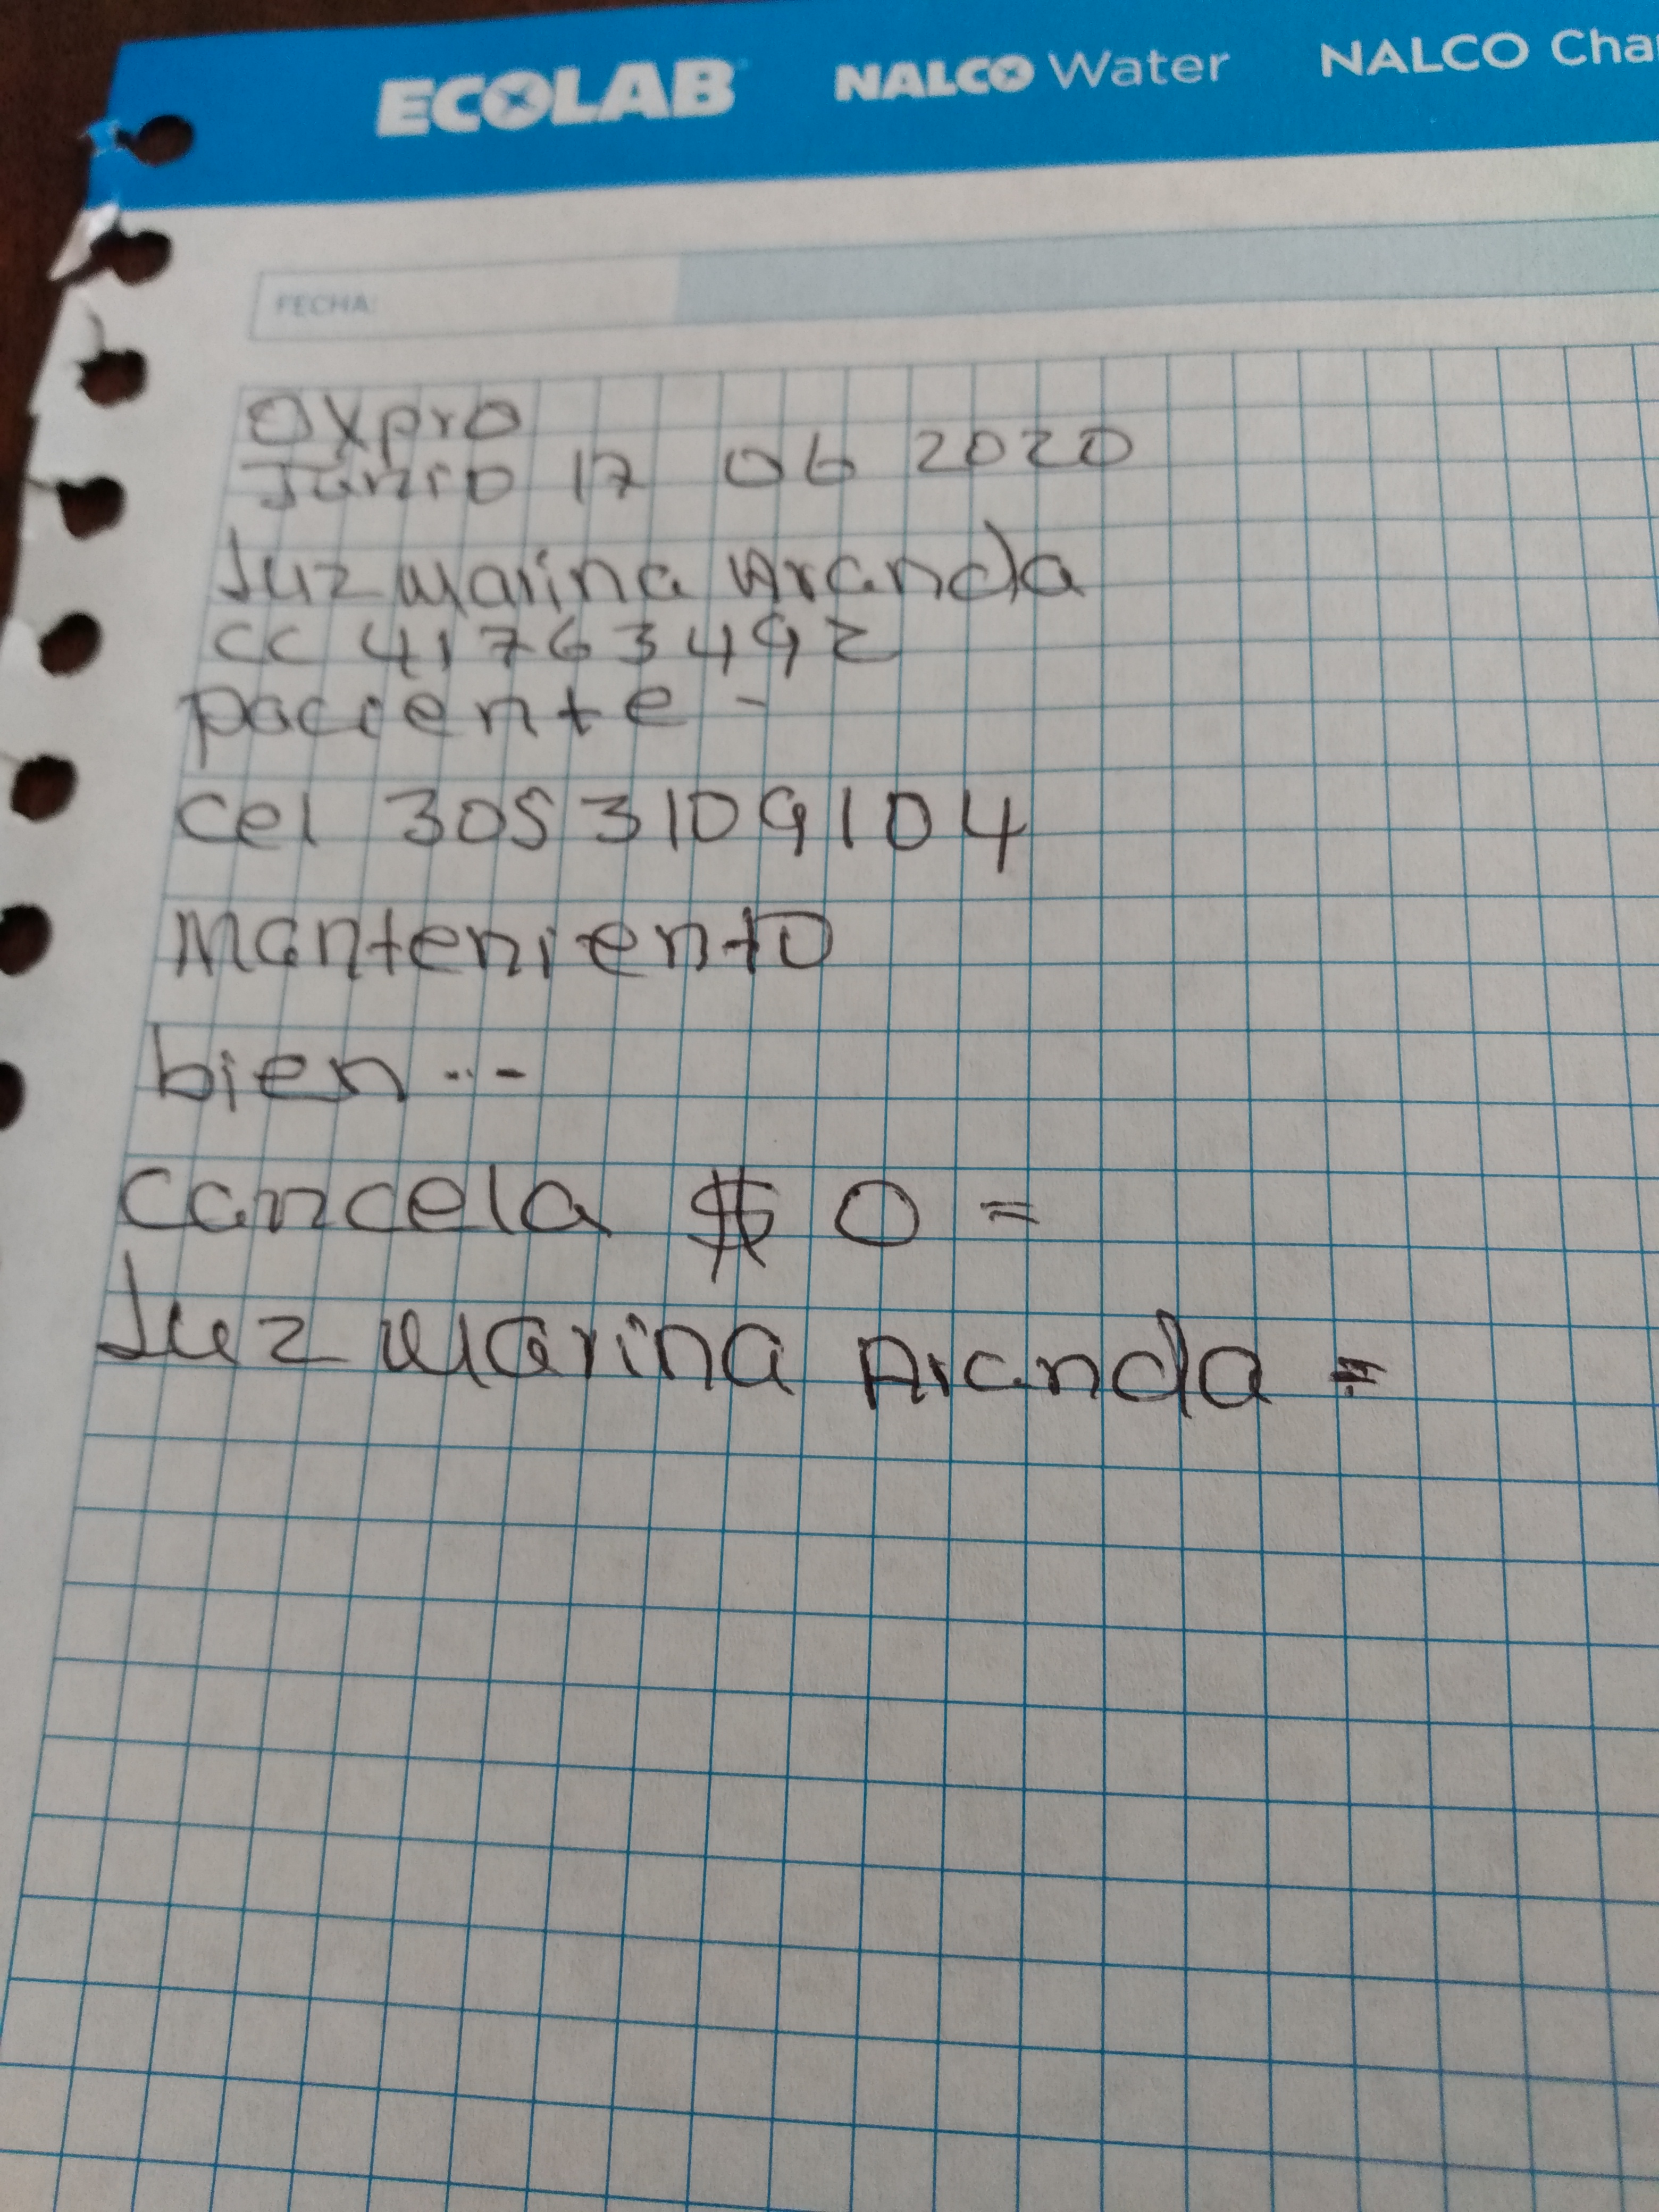 ECOLAB NALCO Water NALCO Cha
FECHA:
OXpro
Junio 17 06 2020
Luz Marina Aranda
cc 41763492
paciente -
cel 3053109104
Manteniento
bien ...
cancela $ 0 =
Luz Marina Aranda =